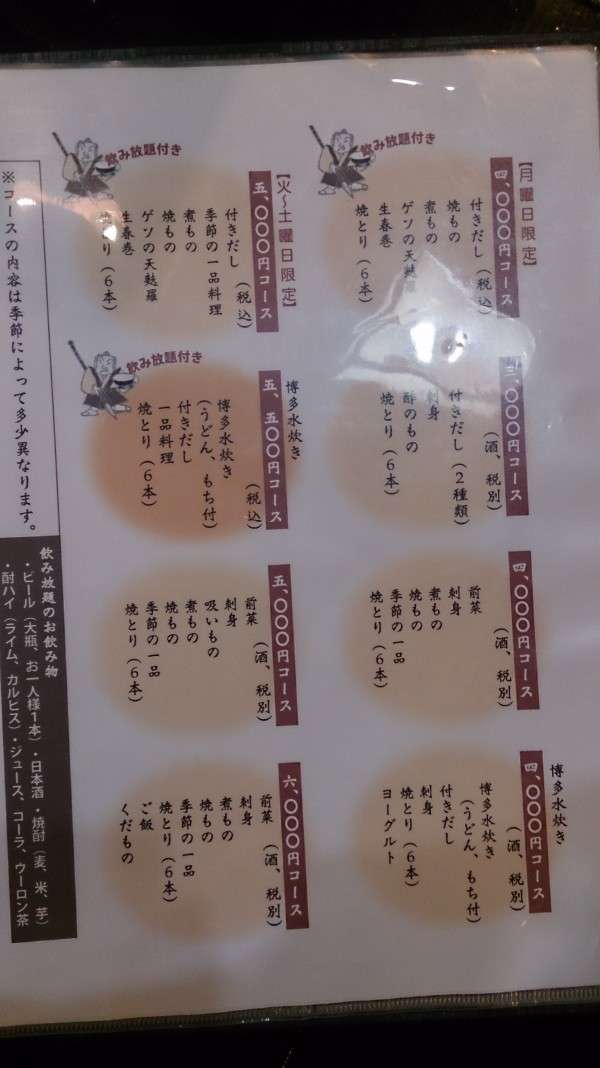 【月曜日限定】
四、〇〇〇円コース
飲み放題付き
(税込)
付きだし
焼もの
煮もの
ゲソの天麩羅
生春巻
焼とり(6本)
三、〇〇〇円コース
(酒、税別)
付きだし(2種類)
刺身
酢のもの
焼とり(6本)
四、〇〇〇円コース
(酒、税別)
前菜
刺身
煮もの
焼もの
季節の一品
焼とり(6本)
博多水炊き
四、〇〇〇円コース
(酒、税別)
博多水炊き
(うどん、もち付)
付きだし
刺身
焼とり(6本)
ヨーグルト
【火〜土曜日限定】
五、〇〇〇円コース
飲み放題付き
(税込)
付きだし
季節の一品料理
煮もの
焼もの
ゲソの天麩羅
生春巻
焼とり(6本)
博多水炊き
五、五〇〇円コース
飲み放題付き
(税込)
博多水炊き
(うどん、もち付)
付きだし
一品料理
焼とり(6本)
五、〇〇〇円コース
(酒、税別)
前菜
刺身
吸いもの
煮もの
焼もの
季節の一品
焼とり(6本)
六、〇〇〇円コース
(酒、税別)
前菜
刺身
煮もの
焼もの
季節の一品
焼とり(6本)
ご飯
くだもの
※コースの内容は季節によって多少異なります。
飲み放題のお飲み物
・ビール(大瓶、お一人様1本)・日本酒・焼酎(麦、米、芋)
・酎ハイ(ライム、カルピス)・ジュース、コーラ、ウーロン茶